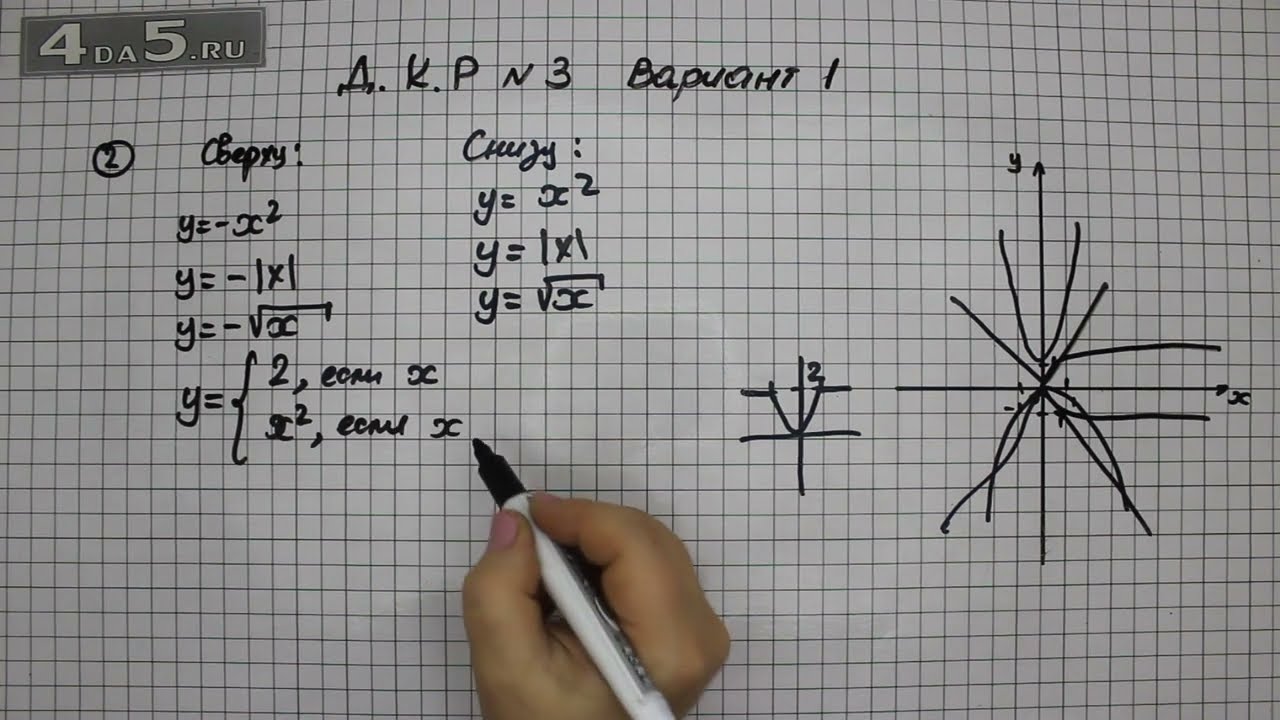 4DA5.RU
Д. К. Р №3 Вариант 1
② Сверху:
y=-x²
y=-|x|
y=-√x
y={ 2, если x
x², если x
Снизу:
y= x²
y= |x|
y= √x
2
y
x